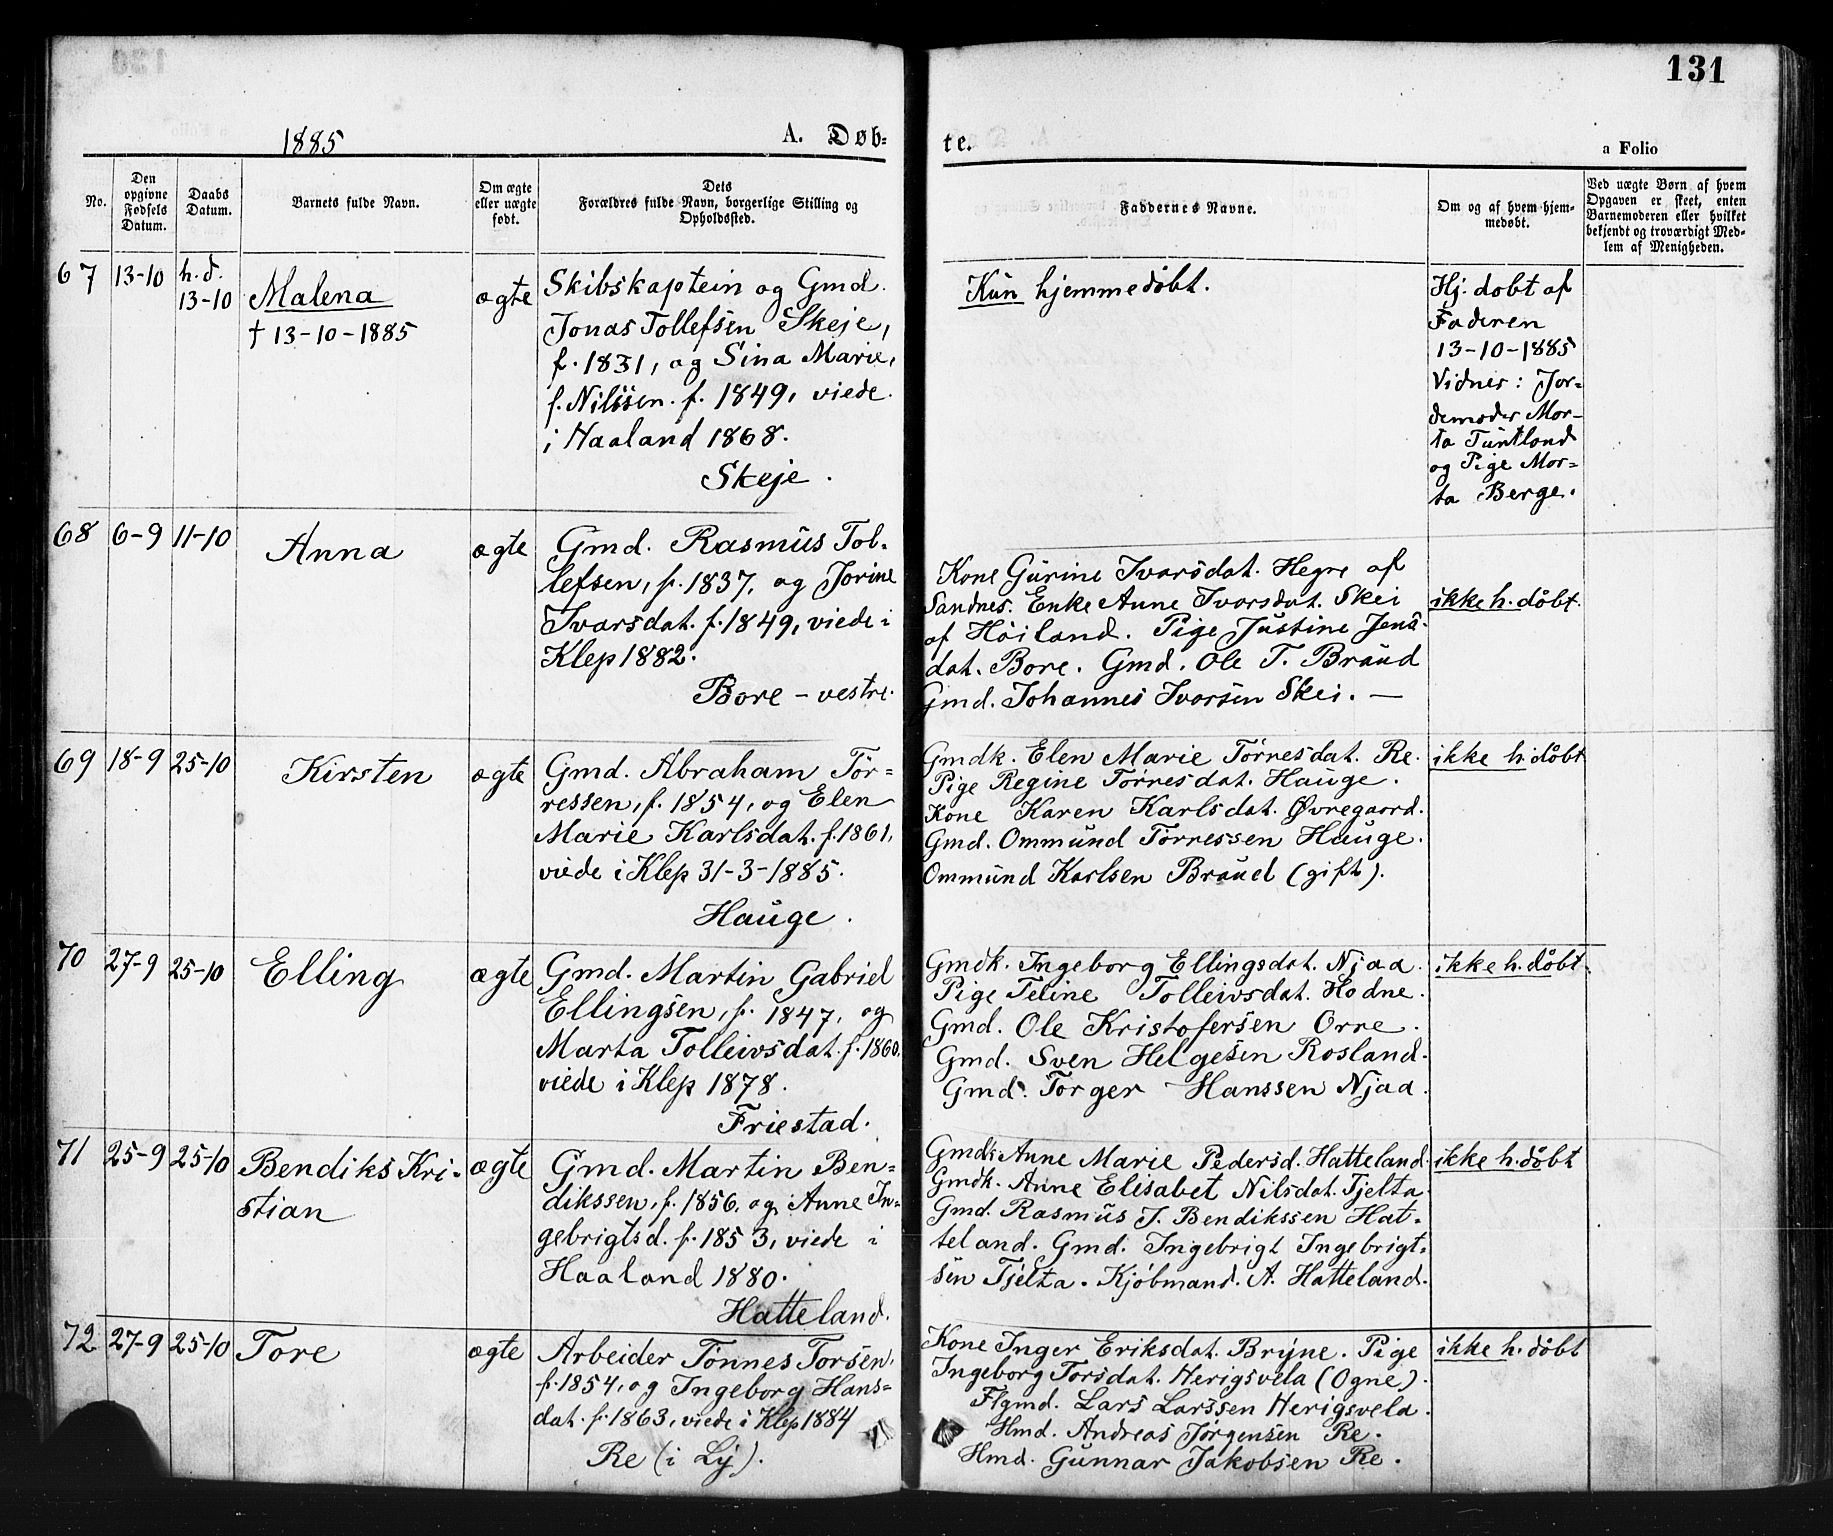 131
1885
A. Døb-
te.
a Folio
No.
Den
opgivne
Fødsels
Datum.
Daabs
Datum.
Barnets fulde Navn.
Om ægte
eller uægte
født.
Dets
Forældres fulde Navn, borgerlige Stilling og
Opholdssted.
Faddernes Navne.
Om og af hvem hjem-
medøbt.
Ved uægte Børn af hvem
Opgaven er skeet, enten
Barnemoderen eller hvilket
bekjendt og troværdigt Med-
lem af Menigheden.
67
13-10
h. d.
13-10
Malena
† 13-10-1885
ægte
Skibskaptein og Gmd.
Jonas Tollefsen Skeje,
f. 1831, og Sina Marie,
f. Nilssen. f. 1849, viede
i Haaland 1868.
Skeje.
Kun hjemmedøbt.
Hj. døbt af
Faderen
13-10-1885
Vidner: Jor-
demoder Mar-
ta Tuntland
og Pige Mar-
ta Berge.
68
6-9
11-10
Anna
ægte
Gmd. Rasmus Tol-
lefsen, f. 1837, og Jorine
Ivarsdat. f. 1849, viede i
Klep 1882.
Bore - vestre.
Kone Gurine Ivarsdat. Hegre af
Sandnes. Enke Anne Ivarsdat. Skei
af Høiland. Pige Justine Jens-
dat. Bore. Gmd. Ole T. Braud
Gmd. Johannes Ivarsen Skei. —
ikke h. døbt.
69
18-9
25-10
Kirsten
ægte
Gmd. Abraham Tør-
ressen, f. 1854, og Elen
Marie Karlsdat. f. 1861,
viede i Klep 31-3-1885.
Hauge.
Gmdk. Elen Marie Tørresdat. Re.
Pige Regine Tørresdat. Hauge.
Kone Karen Karlsdat. Øvregaard.
Gmd. Ommund Tørressen Hauge.
Ommund Karlsen Braud (gift).
ikke h. døbt
70
27-9
25-10
Elling
ægte
Gmd. Martin Gabriel
Ellingsen, f. 1847, og
Marta Tolleivsdat. f. 1860.
viede i Klep 1878.
Friestad.
Gmdk. Ingeborg Ellingsdat. Njaa.
Pige Teline Tolleivsdat. Hodne.
Gmd. Ole Kristofersen Orre.
Gmd. Sven Helgesen Rosland.
Gmd. Torger Hanssen Njaa.
ikke h. døbt.
71
25-9
25-10
Bendiks Kri-
stian
ægte
Gmd. Martin Ben-
dikssen, f. 1856, og Anne In-
gebrigtsd. f. 1853, viede i
Haaland 1880.
Hatteland.
Gmdk. Anne Marie Pedersd. Hatteland.
Gmdk. Anne Elisabet Nilsdat. Tjelta.
Gmd. Rasmus J. Bendikssen Hat-
teland. Gmd. Ingebrigt Ingebrigt-
sen Tjelta. Kjøbmand. A. Hatteland.
ikke h. døbt
72
27-9
25-10
Tore
ægte
Arbeider Tønnes Torsen,
f. 1854, og Ingeborg Hans-
dat. f. 1863, viede i Klep 1884
Re (i Ly).
Kone Inger Eriksdat. Bryne. Pige
Ingeborg Torsdat. Herigsvela (Ogne).
Flgmd. Lars Larssen Herigsvela.
Hmd. Andreas Jørgensen Re.
Hmd. Gunnar Jakobsen Re.
ikke h. døbt